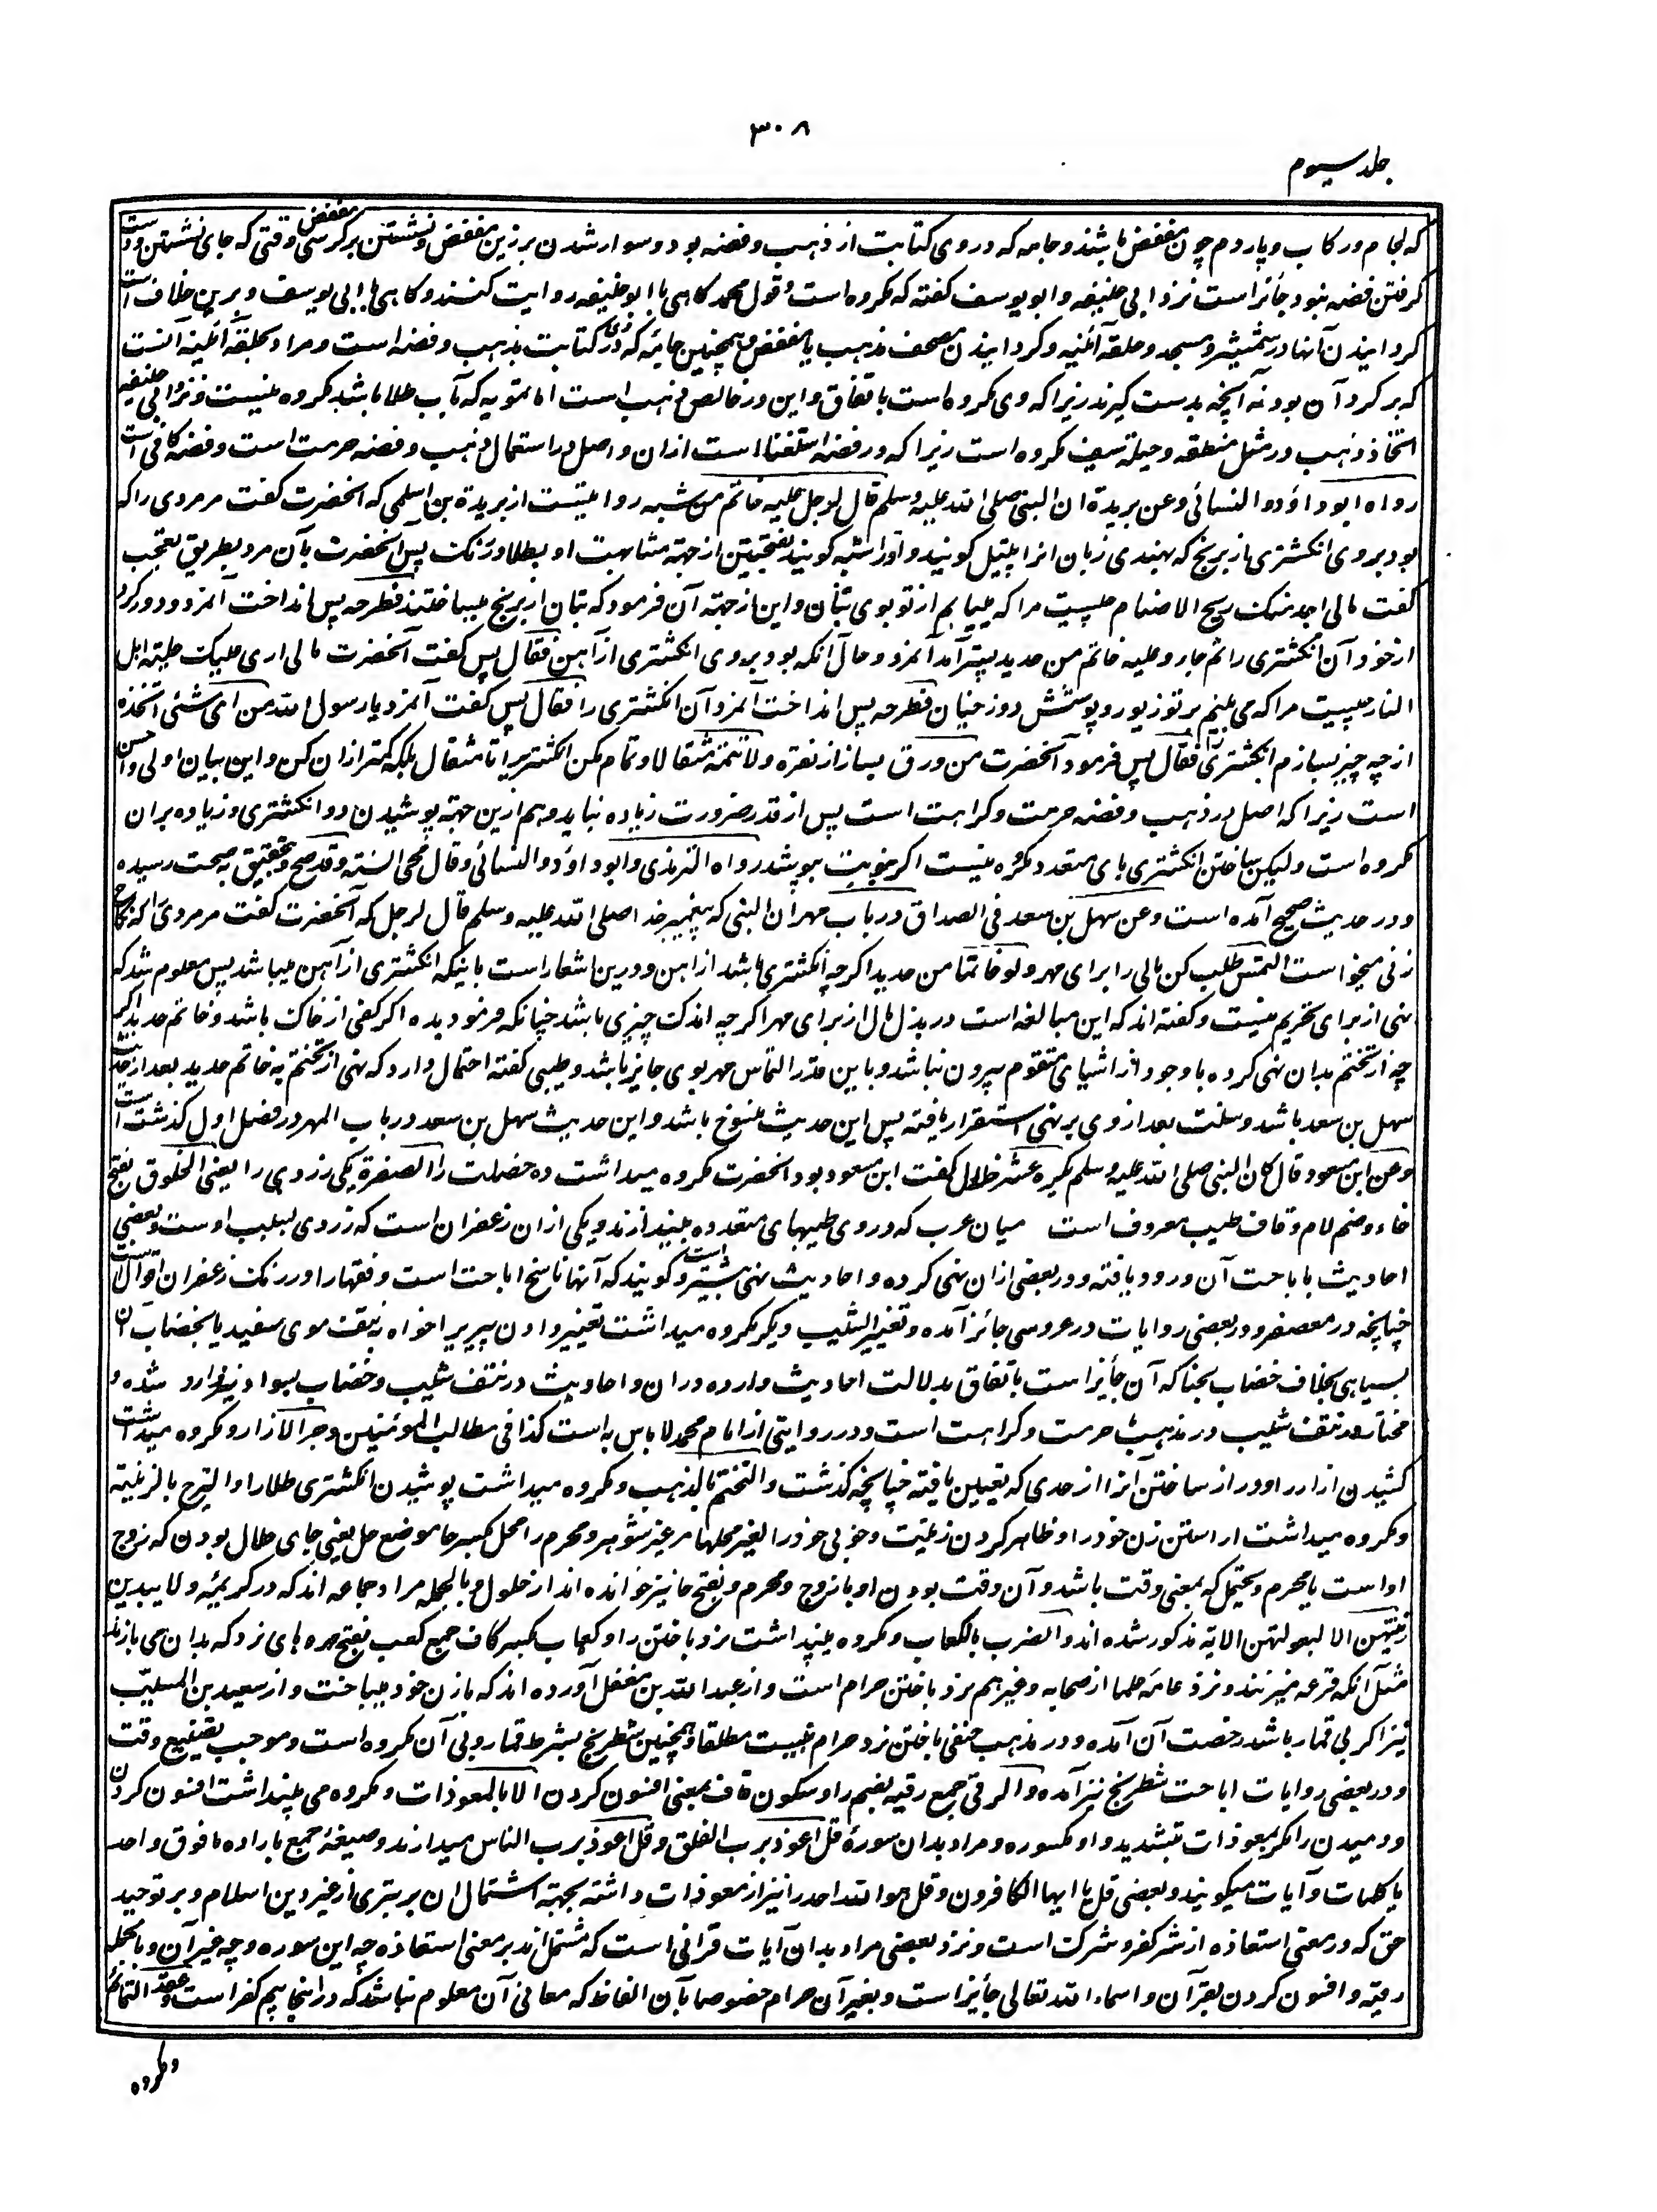 ۳۰۸
جلد سیوم
که لجام و رکاب و پاردم چون مفضض باشند و جامه که در وی کتابت از ذهب و فضه بود و سوار شدن بر زین مفضض و نشستن بر کرسی مفضض وقتی که جای نشستن و دست
کرفتن فضه نبود جائز است نزد ابی حنیفه و ابو یوسف کفته که مکروه است و قول محمد کاهی با ابو حنیفه روایت کنند و کاهی با ابی یوسف و برین خلاف است
کردانیدن آنها در شمشیر و مسجد و حلقه آئینه و کردانیدن مصحف مذهب یا مفضض و همچنین جامه که در وی کتابت بذهب و فضه است و مراد بحلقه آئینه آنست
که بر کرد آن بود نه آنچه بدست کیرند زیرا که وی مکروه است باتفاق و این در خالص ذهب است اما تمویه که بآب طلا باشد مکروه نیست و نزد ابی حنیفه
اتخاذ ذهب در مثل منطقه و حیلة سیف مکروه است زیرا که در فضه استغنا است ازان و اصل در استعمال ذهب و فضه حرمت است و فضه کافی است
رواه ابو داؤد و النسائی و عن بریدة ان النبی صلی الله علیه وسلم قال لرجل علیه خاتم من شبه روایتست از بریدة بن اسلمی که آنحضرت کفت مر مردی را که
بود بر وی انکشتری از برنج که بهندی زبان انرا پیتل کویند و اورا شبه کویند بفتحتین از جهة مشابهت او بطلا در رنک پس آنحضرت بآن مرد بطریق تعجب
کفت مالی اجد منک ریح الاصنام چیست مرا که مییابم از تو بوی بتان و این از جهة آن فرمود که بتان از برنج میساختند فطرحه پس انداخت آنمرد و دور کرد
از خود آن انکشتری را ثم جاء و علیه خاتم من حدید پستر آمد آنمرد و حال آنکه بود بر وی انکشتری از آهن فقال پس کفت آنحضرت مالی اری علیک حلیة اهل
النار چیست مرا که می بینم بر تو زیور و پوشش دوزخیان فطرحه پس انداخت آنمرد آن انکشتری را فقال پس کفت آنمرد یا رسول الله من ای شئی اتخذه
از چه چیز بسازم انکشتری را فقال پس فرمود آنحضرت من ورق بساز از نقره و لا تتمه مثقالا و تمام مکن انکشتری را تا مثقال بلکه کمتر ازان کن و این بیان اولی و احسن
است زیرا که اصل در ذهب و فضه حرمت و کراهت است پس از قدر ضرورت زیاده نباید و هم ازین جهة پوشیدن دو انکشتری و زیاده بران
مکروه است ولیکن ساختن انکشتری های متعدد مکروه نیست اکر بنوبت بپوشد رواه الترمذی و ابو داؤد و النسائی و قال محی السنه و قد صح و بتحقیق بصحت رسیده
و در حدیث صحیح آمده است و عن سهل بن سعد فی الصداق در باب مهر ان النبی که پیغمبر خدا صلی الله علیه وسلم قال لرجل که آنحضرت کفت مر مردی را که نکاح
زنی میخواست التمس طلب کن مالی را برای مهر و لو خاتما من حدید اکرچه انکشتری باشد از اهن و درین اشعار است باینکه انکشتری از آهن میباشد پس معلوم شد که
نهی از برای تحریم نیست و کفته اند که این مبالغه است در بذل مال از برای مهر اکرچه اندک چیزی باشد چنانکه فرمود بده اکر کفی از خاک باشد و خاتم حدید اکر
چه از تختم بدان نهی کرده با وجود از اشیای متقوم بیرون نباشد و باین قدر التماس مهر بوی جایز باشد و طیبی کفته احتمال دارد که نهی از تختم به خاتم حدید بعد از حدیث
سهل بن سعد باشد و سنت بعد از وی بر نهی استقرار یافته پس این حدیث منسوخ باشد و این حدیث سهل بن سعد در باب المهر در فصل اول کذشت است
و عن ابن مسعود قال کان النبی صلی الله علیه وسلم یکره عشر خلال کفت ابن مسعود بود انحضرت مکروه میداشت ده خصلت را الصفرة یکی زردی را یعنی الخلوق بفتح
خاء و ضم لام و قاف طیب معروف است میان عرب که در وی طیبهای متعدده میندازند و یکی ازان زعفران است که زردی بسبب اوست و بعضی
احادیث باباحت آن ورود یافته و در بعضی ازان نهی کرده و احادیث نهی بیشتر است و کویند که آنها ناسخ اباحت است و فقها را در رنک زعفران اقوال است
چنانچه در معصفر و در بعضی روایات در عروسی جائز آمده و تغییر الشیب دیکر مکروه میداشت تغییر دادن پیری را خواه به نتف موی سفید یا بخضاب آن
بسیاهی بخلاف خضاب بحنا که آن جایز است باتفاق بدلالت احادیث وارده دران و احادیث در نتف شیب و خضاب بسواد نیز وارد شده و
مختار در نتف شیب در مذهب حرمت و کراهت است و در روایتی از امام محمد لا باس به است کذا فی مطالب المؤمنین و جر الازار و مکروه میداشت
کشیدن ازار را و دراز ساختن آنرا از حدی که تعیین یافته چنانچه کذشت و التختم بالذهب و مکروه میداشت پوشیدن انکشتری طلا را و التبرج بالزینة
و مکروه میداشت اراستن زن خود را و ظاهر کردن زینت و خوبی خود را لغیر محلها مر غیر شوهر و محرم را محل بکسر حا موضع حل یعنی جای حلال بودن که زوج
او است یا محرم و یحتمل که بمعنی وقت باشد و آن وقت بودن او با زوج و محرم و بفتح حا نیز خوانده اند از حلول و بالجمله مراد جماعه اند که در کریمه و لا یبدین
زینتهن الا لبعولتهن الایة مذکور شده اند و الضرب بالکعاب و مکروه میپنداشت نرد باختن را و کعاب بکسر کاف جمع کعب بفتح مهره های نرد که بدان می بازند
مثل آنکه قرعه میزنند و نزد عامه علما از صحابه و غیرهم نرد باختن حرام است و از عبد الله بن مغفل آورده اند که با زن خود میباخت و از سعید بن المسیب
نیز اکر بی قمار باشد رخصت آن آمده و در مذهب حنفی باختن نرد حرام است مطلقا و همچنین شطرنج بشرط قمار و بی آن مکروه است و موجب تضییع وقت
و در بعضی روایات اباحت شطرنج نیز آمده و الرقی جمع رقیه بضم را و سکون قاف بمعنی افسون کردن الا بالمعوذات و مکروه می پنداشت افسون کردن
و دمیدن را مکر بمعوذات بتشدید واو مکسوره و مراد بدان سورۀ قل اعوذ برب الفلق و قل اعوذ برب الناس میدارند و صیغۀ جمع باراده ما فوق واحد
یا کلمات و آیات میکویند و بعضی قل یا ایها الکافرون و قل هو الله احد را نیز از معوذات داشته بجهة اشتمال ان بر بتری از غیر دین اسلام و بر توحید
حق که در معنی استعاذه از شر کفر و شرکت است و نزد بعضی مراد بدان آیات قرانی است که مشتمل اند بر معنی استعاذه چه این سوره و چه غیر آن و بالجمله
رقیه و افسون کردن بقرآن و اسماء الله تعالی جایز است و بغیر آن حرام خصوصا بآن الفاظ که معانی آن معلوم نباشد که در انجا بیم کفر است و عقد التمائم
و مکروه